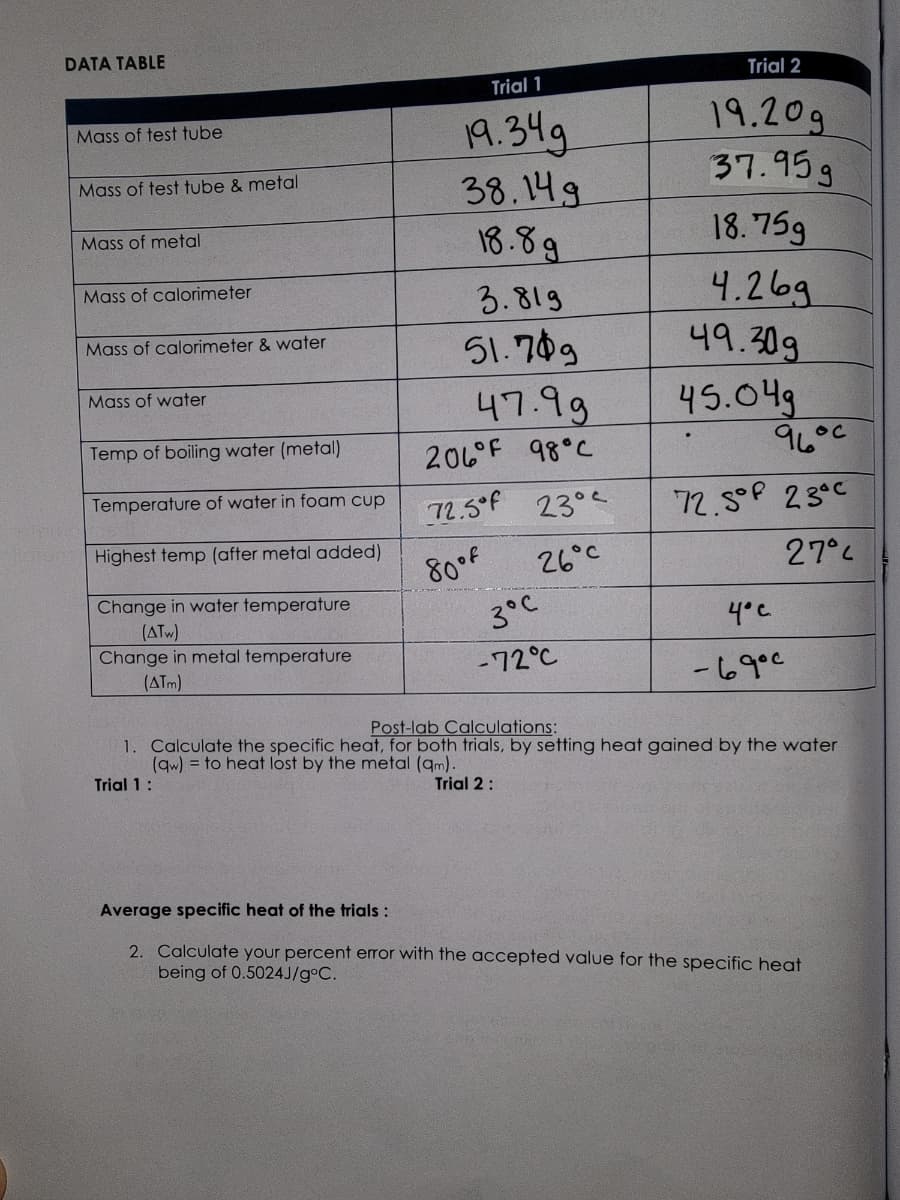 DATA TABLE
Trial 1 Trial 2
Mass of test tube 19.34g 19.20g
Mass of test tube & metal 38.14g 37.95g
Mass of metal 18.8g 18.75g
Mass of calorimeter 3.81g 4.26g
Mass of calorimeter & water 51.70g 49.30g
Mass of water 47.9g 45.04g
Temp of boiling water (metal) 206°F 98°C 96°C
Temperature of water in foam cup 72.5°f 23°c 72.5°F 23°C
Highest temp (after metal added) 80°f 26°C 27°c
Change in water temperature 3°C 4°C
(ΔTw)
Change in metal temperature -72°C -69°C
(ΔTm)
Post-lab Calculations:
1. Calculate the specific heat, for both trials, by setting heat gained by the water
(qw) = to heat lost by the metal (qm).
Trial 1 : Trial 2 :
Average specific heat of the trials :
2. Calculate your percent error with the accepted value for the specific heat
being of 0.5024J/g°C.